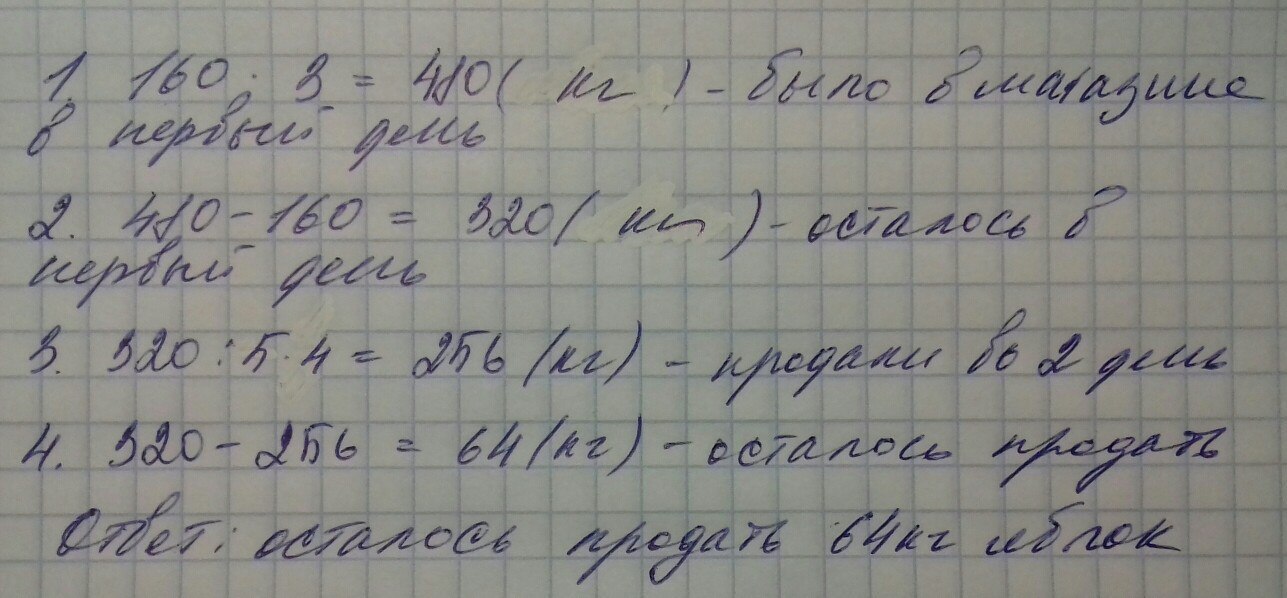 1. 160 · 3 = 480 ( кг ) - было в магазине
в первый день
2. 480 - 160 = 320 ( кг ) - осталось в
первый день
3. 320 : 5 · 4 = 256 (кг) - продали во 2 день
4. 320 - 256 = 64 (кг) - осталось продать
Ответ: осталось продать 64кг яблок